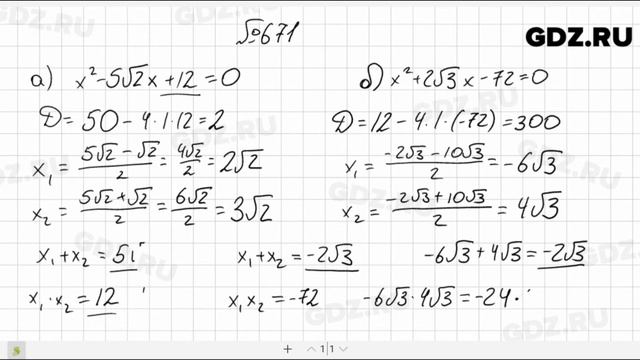 №671
GDZ.RU
а) x²-5√2x+12=0
D=50-4·1·12=2
x₁=(5√2-√2)/2=4√2/2=2√2
x₂=(5√2+√2)/2=6√2/2=3√2
x₁+x₂=5
x₁·x₂=12
б) x²+2√3x-72=0
D=12-4·1·(-72)=300
x₁=(-2√3-10√3)/2=-6√3
x₂=(-2√3+10√3)/2=4√3
x₁+x₂=-2√3
-6√3+4√3=-2√3
x₁x₂=-72
-6√3·4√3=-24·
1|1